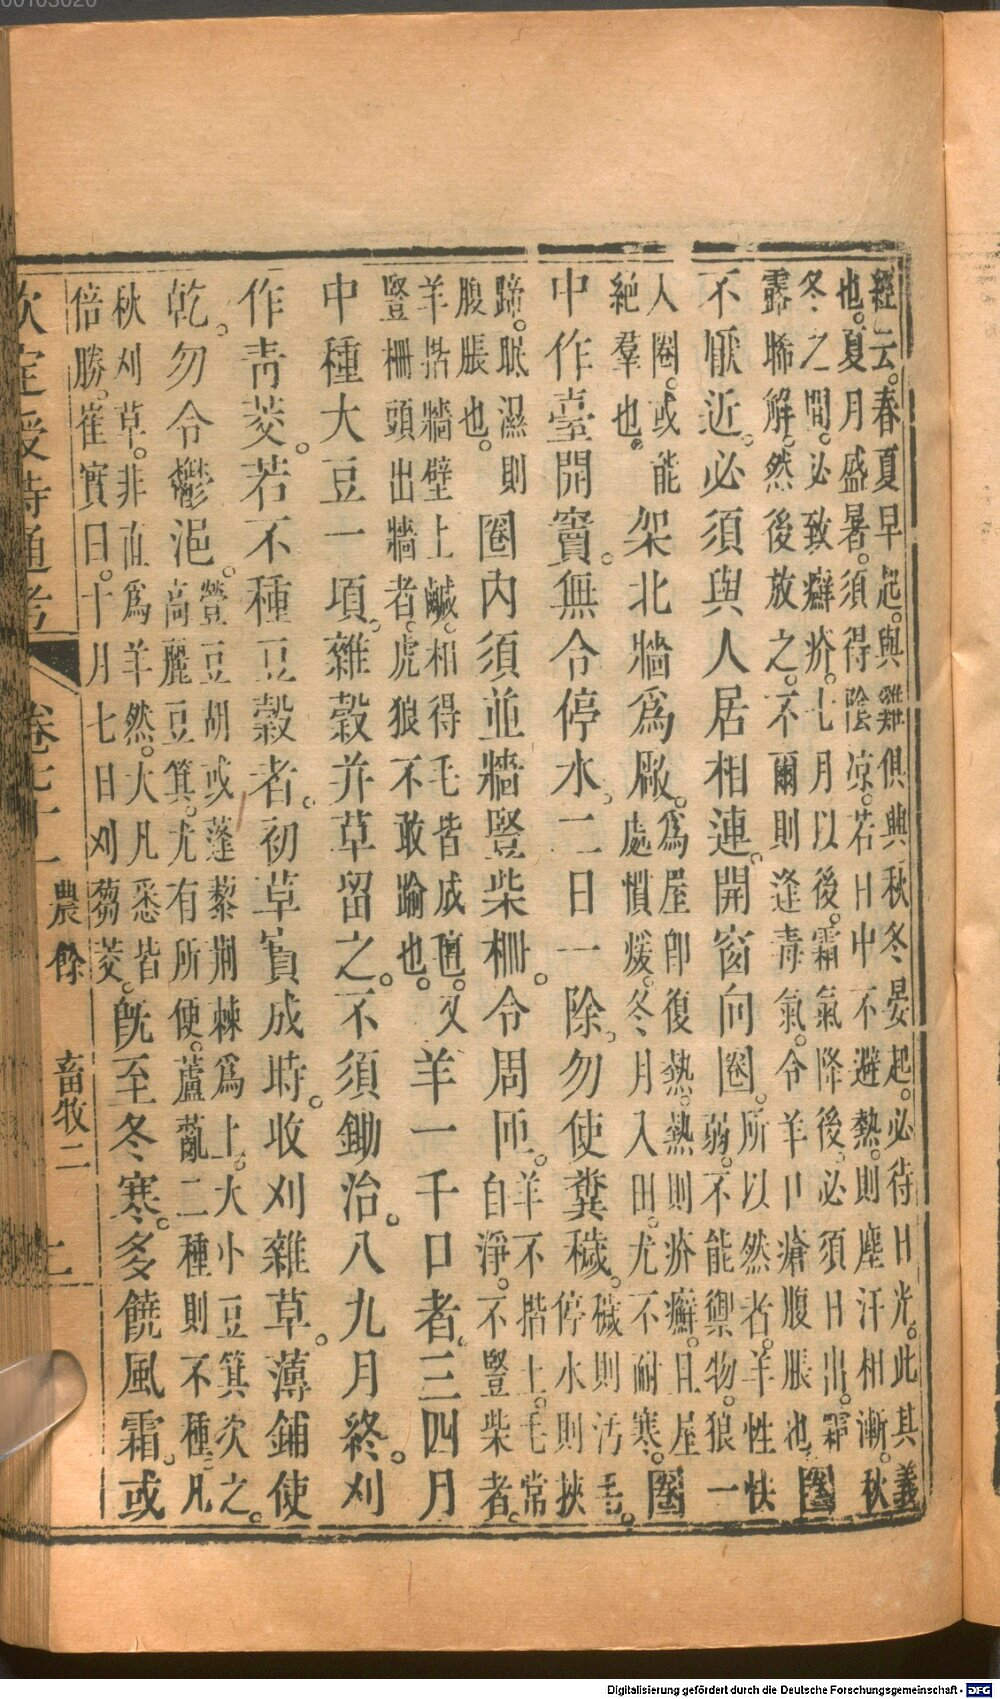 經云。春夏早起。與雞俱興。秋冬晏起。必待日光。此其義
也。夏月盛暑。須得陰凉。若日中不避熱。則塵汗相漸。秋
冬之間。必致癬疥。七月以後。霜氣降後。必須日出。霜
露晞解。然後放之。不爾則逢毒氣。令羊口瘡腹脹也。
圈
不厭近。必須與人居相連。開窗向圈。
所以然者。羊性怯
弱。不能禦物。狼一
人圈。或能
絕羣也。
架北牆爲廠。
爲屋卽復熱。熱則疥癬。且屋
處慣煖。冬月入田。尤不耐寒。
圈
中作臺開竇。無令停水。二日一除。勿使糞穢。
穢則汚毛。
停水則挾
蹄。眠濕則
腹脹也。
圈內須並牆豎柴柵。令周匝。
羊不揩土。毛常
自淨。不豎柴者。
羊揩牆壁土鹹。相得毛皆成氊。又
豎柵頭出牆者。虎狼不敢踰也。
羊一千口者。三四月
中種大豆一項。雜穀并草留之。不須鋤治。八九月終。刈
作靑茭。若不種豆穀者。初草實成時。收刈雜草。薄鋪使
乾。勿令鬱浥。
豆胡或蓬藜荆棘爲上。大小豆萁次之。
高麗豆萁。尤有所便。蘆薍二種則不種。凡
秋刈草。非直爲羊然。大凡悉皆
倍勝。崔實曰。十月七日刈蒭茭。
旣至冬寒。多饒風霜。或
欽定授時通考 卷七十一 農餘 畜牧二
Digitalisierung gefördert durch die Deutsche Forschungsgemeinschaft - DFG